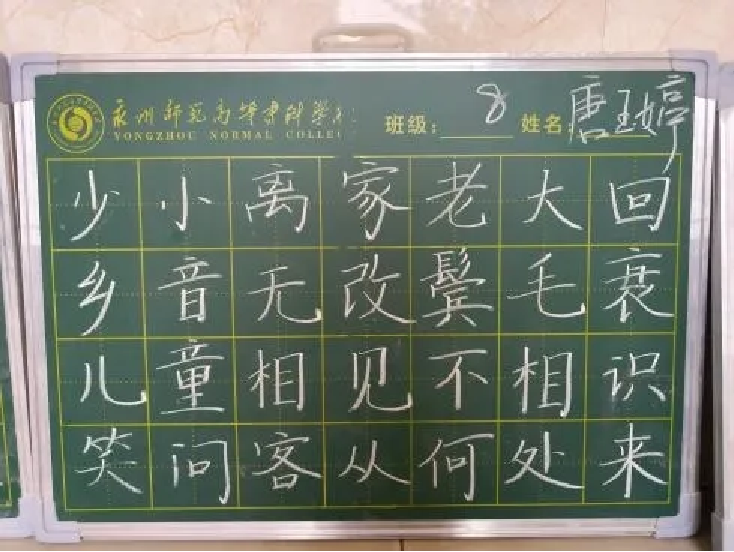 永州师范高等专科学校
YONGZHOU NORMAL COLLEG
班级: 8 姓名: 唐玉婷
少小离家老大回
乡音无改鬓毛衰
儿童相见不相识
笑问客从何处来